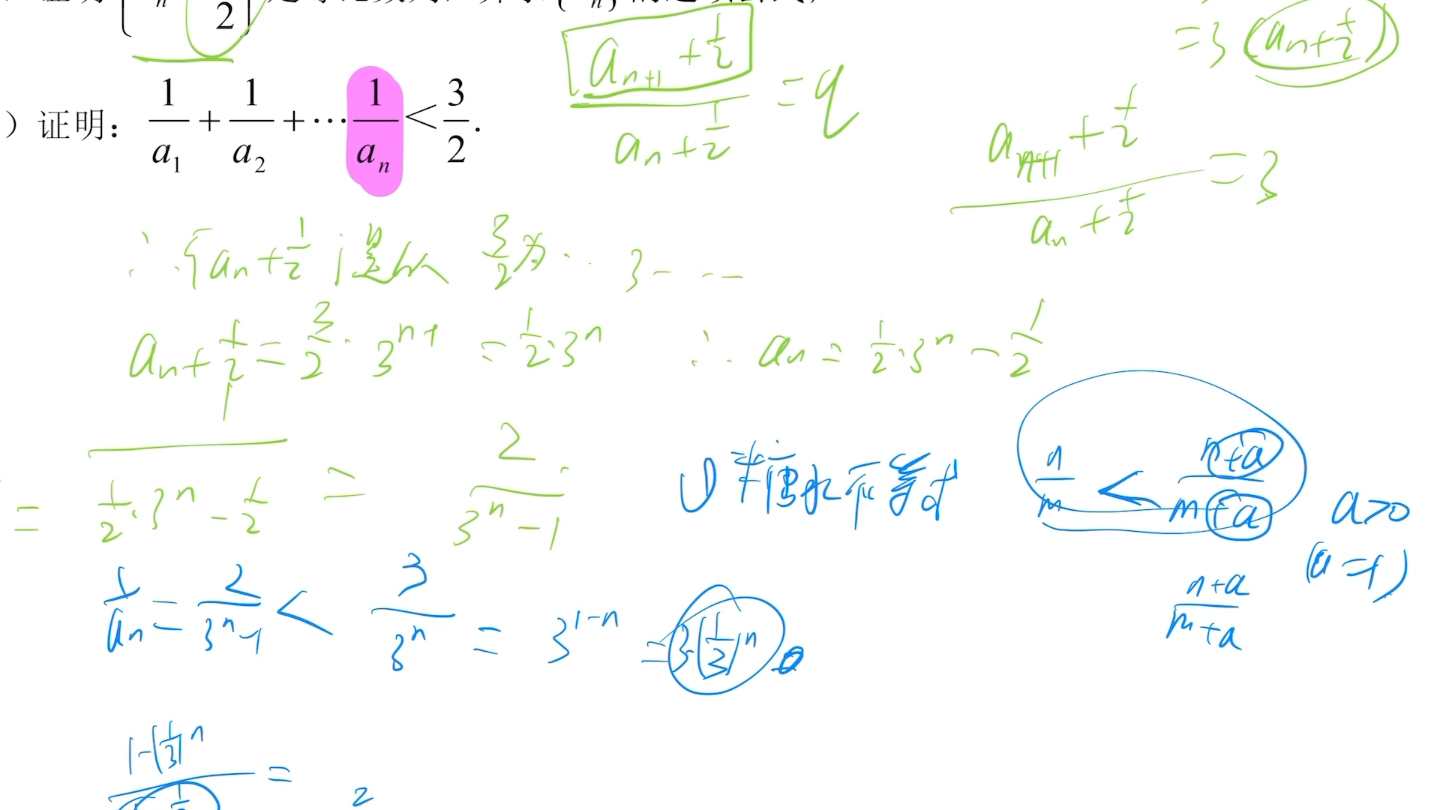 = 3 (aₙ + 1/2)
)证明: 1/a₁ + 1/a₂ + ⋯ 1/aₙ < 3/2.
(aₙ₊₁ + 1/2)/(aₙ + 1/2) = q
(aₙ₊₁ + 1/2)/(aₙ + 1/2) = 3
∴ {aₙ + 1/2} 是以 3/2 为 ·· 3 - - -
aₙ + 1/2 = 3/2 · 3ⁿ⁻¹ = 1/2·3ⁿ ∴ aₙ = 1/2·3ⁿ − 1/2
= 1/(1/2·3ⁿ − 1/2) = 2/(3ⁿ − 1)
① 糖水不等式 n/m < (n+a)/(m+a) a>0
(a=1)
1/aₙ = 2/(3ⁿ−1) < 3/3ⁿ = 3¹⁻ⁿ = 3·(1/3)ⁿ
(n+a)/(m+a)
1−(1/3)ⁿ =
2